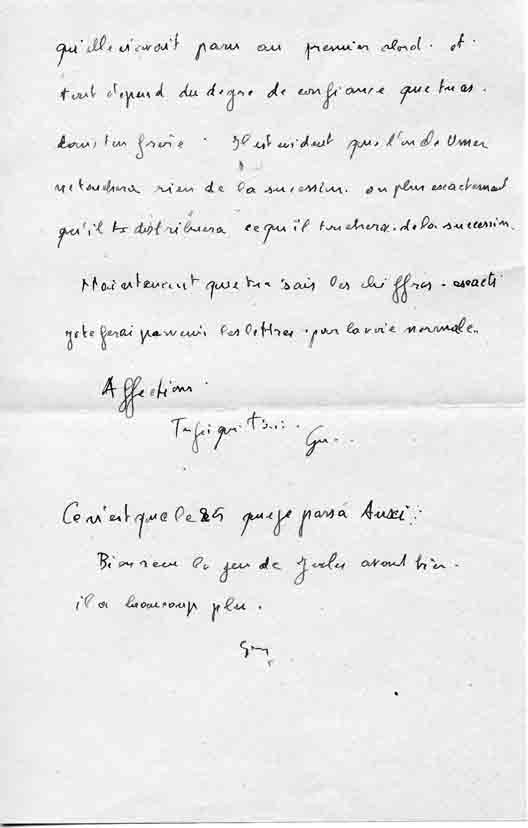 qu'elle n'avait paru au premier abord. et
tout dépend du degré de confiance que tu as.
dans ton frère. Il est évident que l'on de Umer
ne touchera rien de la succession. ou plus exactement
qu'il te distribuera ce qu'il touchera. de la succession.
Maintenant que tu sais les chiffres. exacts
je te ferai parvenir les lettres. par la voie normale.
Affections.
Guy.
Ce n'est que le 25 que je pars à Auxi
Bien reçu le jeu de Jules avant hier.
il a beaucoup plu.
Guy